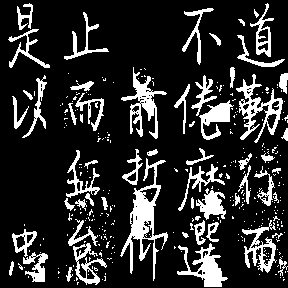 道勤行而
不倦麾選
前哲仰
止而無怠
是以忠